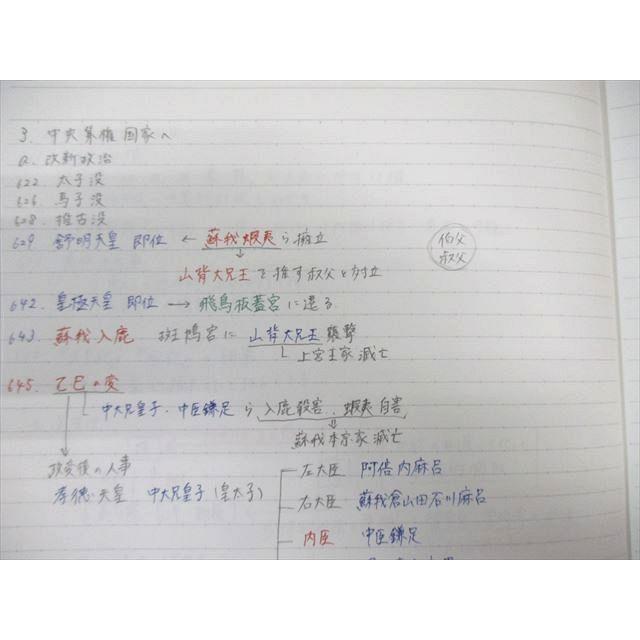 3. 中央集権国家へ
a. 改新政治
622 太子没
626 馬子没
628 推古没
629 舒明天皇 即位 ← 蘇我蝦夷ら擁立
伯父
叔父
山背大兄王を推す叔父と対立
642. 皇極天皇 即位 → 飛鳥板蓋宮に遷る
643. 蘇我入鹿 斑鳩宮に 山背大兄王 襲撃
上宮王家 滅亡
645. 乙巳の変
中大兄皇子・中臣鎌足ら 入鹿殺害、蝦夷自害
蘇我本宗家滅亡
政変後の人事
孝徳天皇 中大兄皇子(皇太子)
左大臣 阿倍内麻呂
右大臣 蘇我倉山田石川麻呂
内臣 中臣鎌足